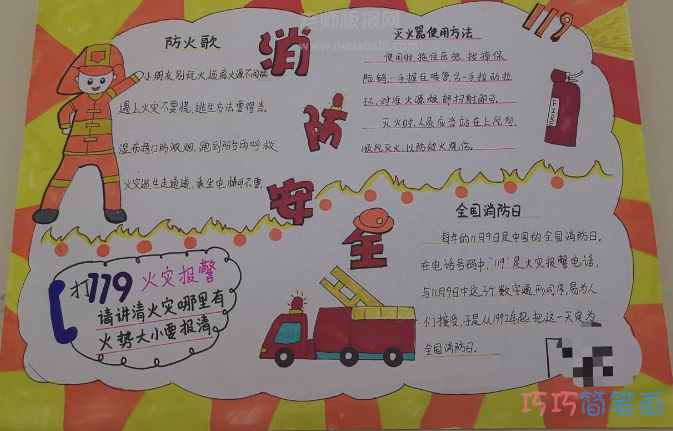 老师板报网
www.nielaoshi.com
防火歌
小朋友别玩火,远离火源不闯祸
遇上火灾不要慌,逃生方法要得当
湿布捂口防浓烟,跑到阳台再呼救
火灾逃生走通道,乘坐电梯可不要
消
防
安
全
119
灭火器使用方法
使用时,握住压把,拔掉保
险销,一手握住喷管另一手拉动拉
环,对准火源根部扫射即可。
灭火时,人员应当站在上风向,
顺风灭火,以防被火烧伤。
FIRE
全国消防日
每年的11月9日是中国的全国消防日。
在电话号码中,"119"是火灾报警电话,
与11月9日中这3个数字通形同序,易为人
们接受,于是从1992年起,把这一天定为
全国消防日。
打119火灾报警
请讲清火灾哪里有
火势大小要报清
巧巧简笔画